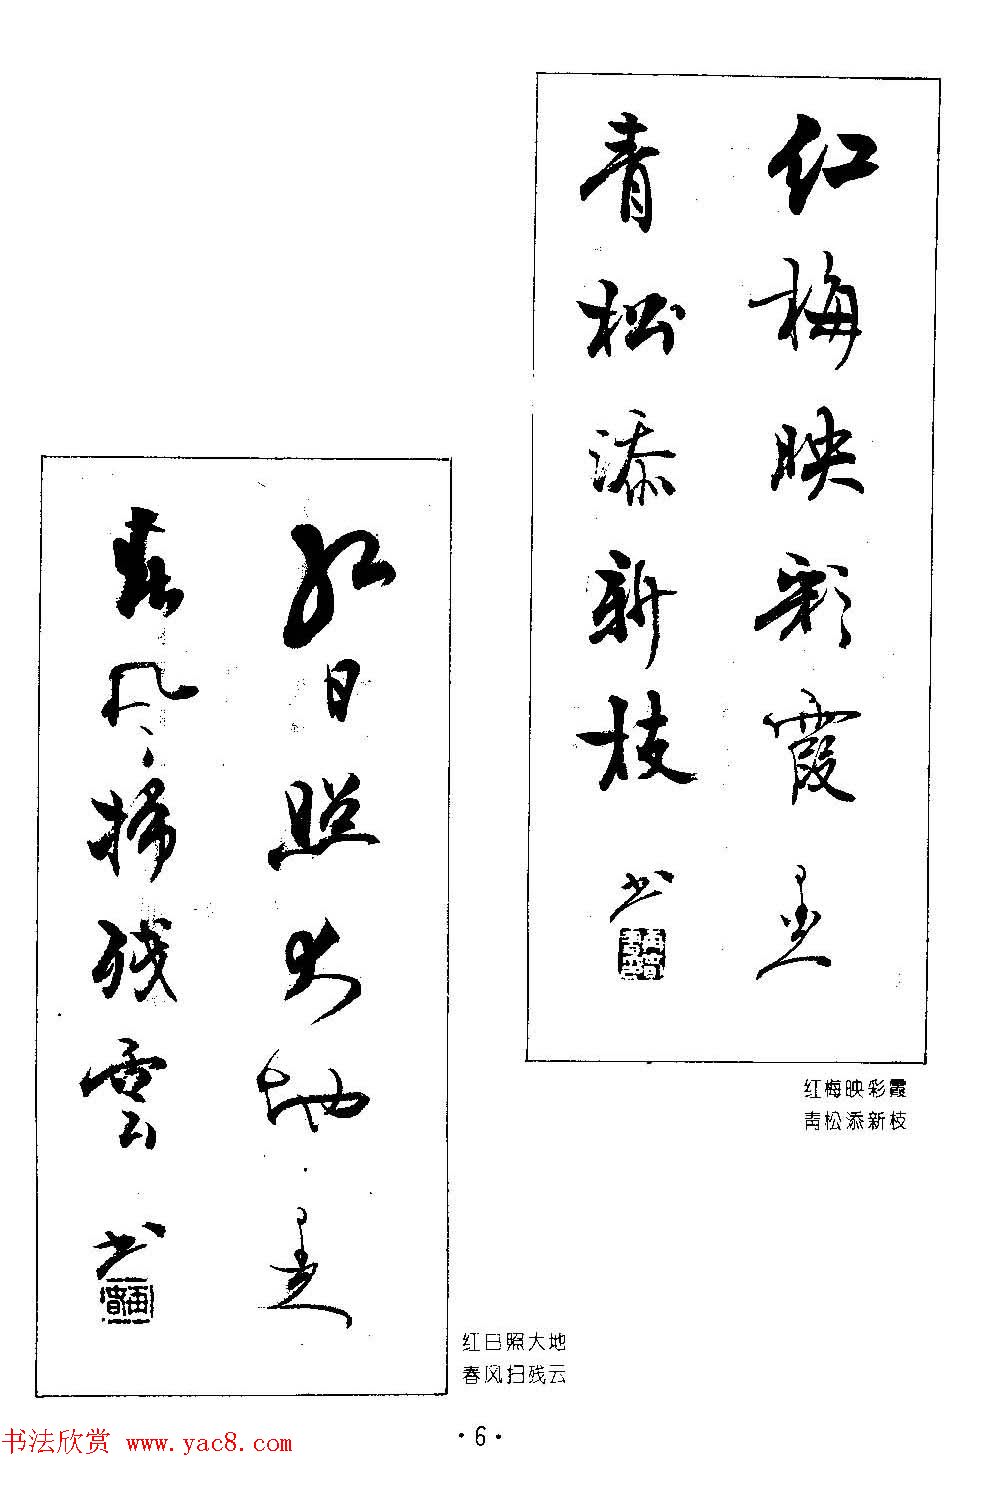 红梅映彩霞
青松添新枝
书
红梅映彩霞
青松添新枝
红日照大地
春风掃残雲
书
红日照大地
春风扫残云
·6·
书法欣赏 www.yac8.com